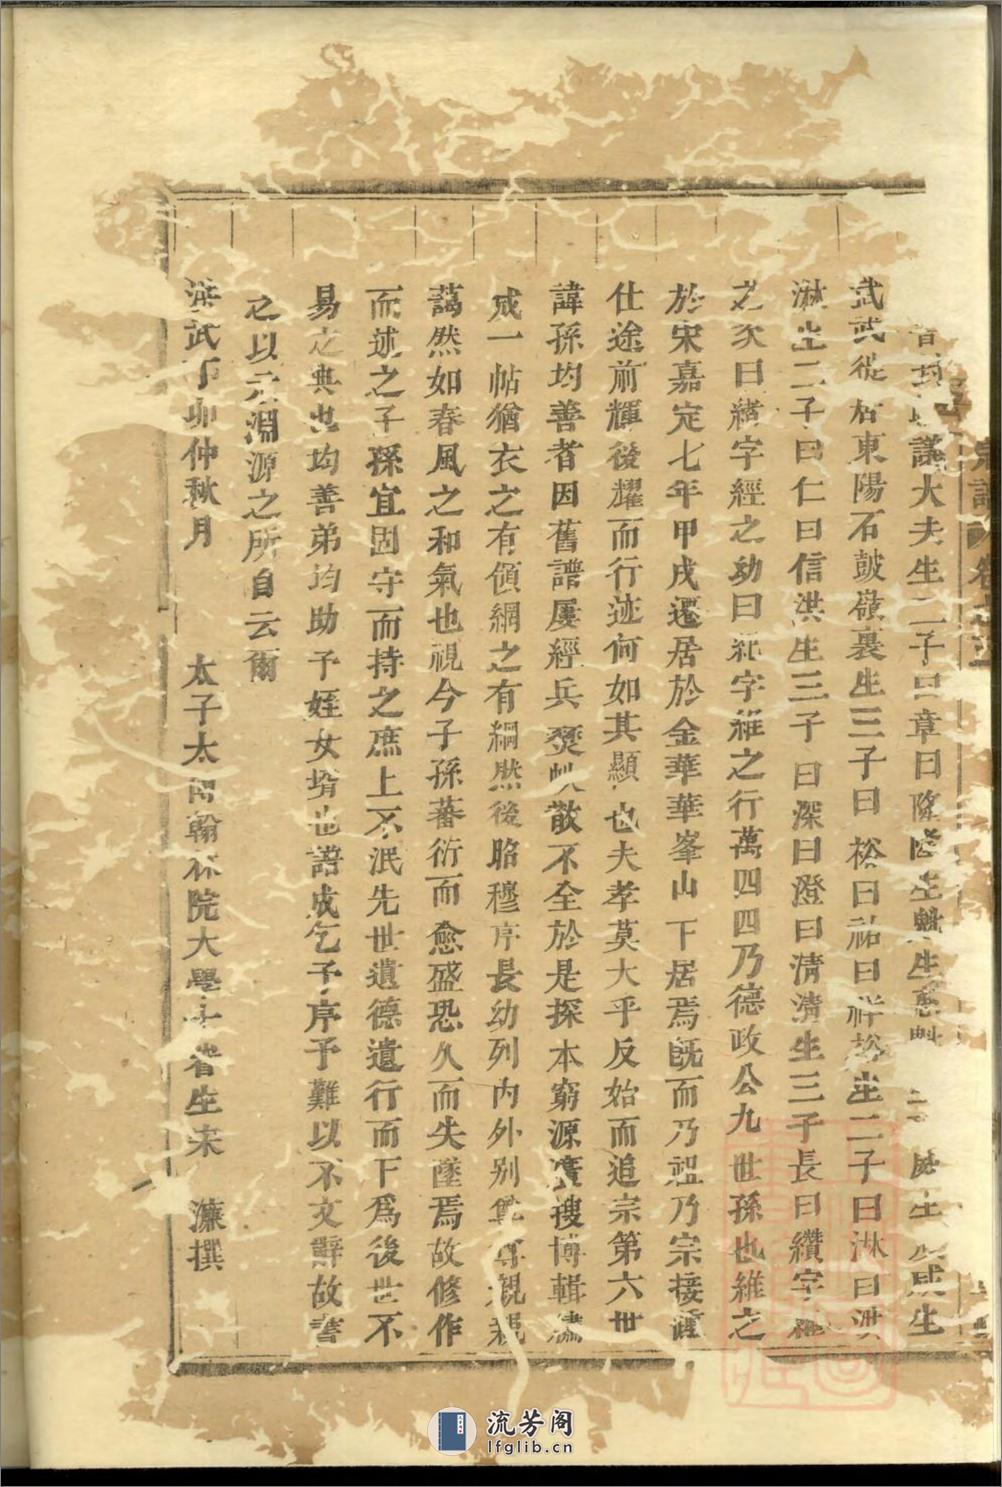 宗譜 卷之
議大夫生二子曰章曰隆隆生生
武武從居東陽石皷嶺裏生三子曰崧曰祐曰祥崧生二子曰淋曰洪
淋生二子曰仁曰信洪生三子曰深曰澄曰清清生三子長曰纘字
之次曰緒字經之幼曰紀字維之行萬四四乃德政公九世孫也維之
於宋嘉定七年甲戌遷居於金華華峯山下居焉旣而乃祖乃宗接踵
仕途前輝後耀而行迹何如其顯也夫孝莫大乎反始而追宗第六世
諱孫均善者因舊譜屢經兵燹軼散不全於是探本窮源廣搜博輯
成一帖猶衣之有領網之有綱然後昭穆序長幼列內外別尊親親
藹然如春風之和氣也視今子孫蕃衍而愈盛恐久而失墜焉故修作
而述之子孫宜固守而持之庶上不泯先世遺德遺行而下爲後世不
易之典也均善弟均助予姪女壻也譜成乞予序予難以不文辭故書
之以元淵源之所自云爾
洪武丁卯仲秋月 太子太翰林院大學士生宋 濂撰
流芳阁
lfglib.cn